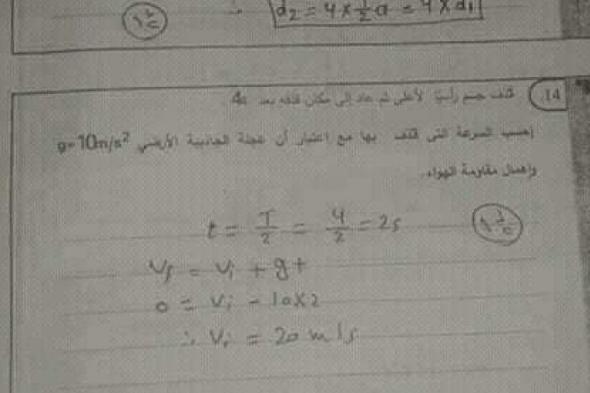 d₂ = 4 × ½ a = 4 × d₁
14. قذف جسم رأسيًا لأعلى ثم عاد إلى مكان قذفه بعد 4s
إحسب السرعة التى قذف بها مع إعتبار أن عجلة الجاذبية الأرضي g=10m/s²
وإهمال مقاومة الهواء.
t = T/2 = 4/2 = 2s
Vf = Vi + gt
0 = Vi - 10×2
∴ Vi = 20 m/s